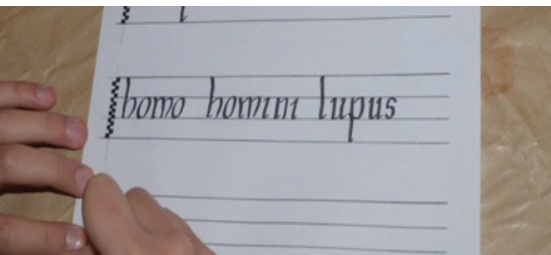 homo homini lupus